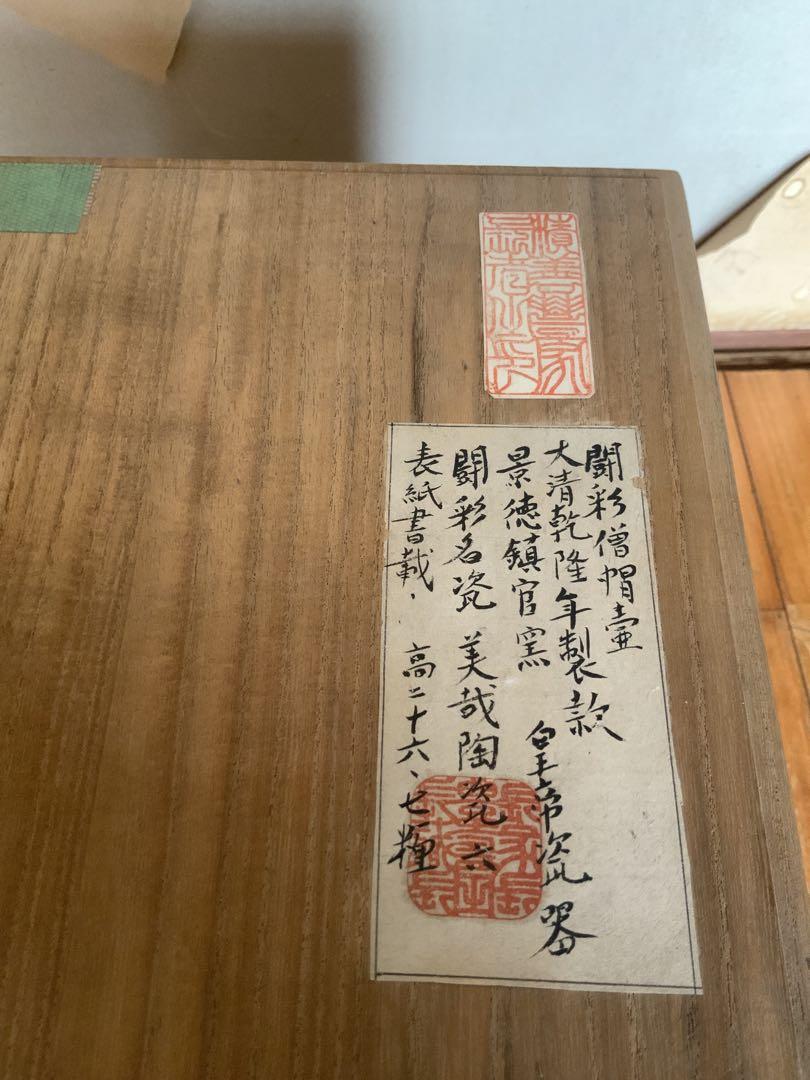 積善豊家
闘彩僧帽壷
大清乾隆年製款
景徳鎮官窯 皇帝瓷器
闘彩名瓷 美哉陶瓷六
表紙書載、 高二十六、七糎